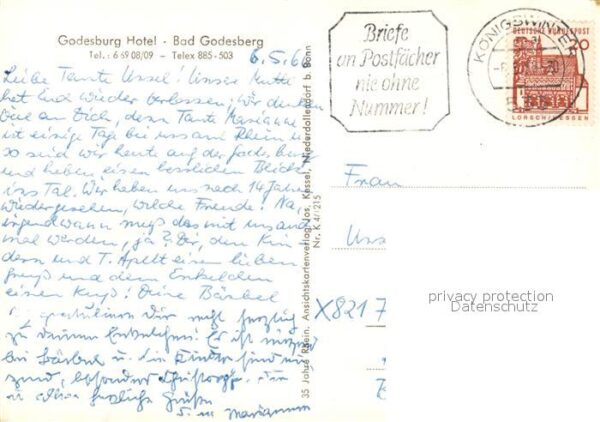 Godesburg Hotel · Bad Godesberg
Tel.: 6 69 08/09 – Telex 885-503
6.5.6
Liebe Tante Ussel! Unser Mutti
hat Euch wieder verlassen; wir denken
viel an Dich, denn Tante Marianne
ist einige Tage bei uns am Rhein u.
so sind wir heute auf der Godesburg
und haben einen herrlichen Blick
ins Tal. Wir haben uns nach 14 Jahren
wiedergesehen, welche Freude! Na,
irgendwann muß das mit uns auch
mal werden, ja? Dir, den Kin-
dern und T. einen lieben
Gruß und dem Enkelchen
einen Kuß! Deine Bärbel
Dir recht herzlich
zu Deinem Enkelchen! Es ist
bei Bärbel u. die Kinder sind
Dir
u. allen herzliche Grüße
Marianne
35 Jahre Rhein. Ansichtskartenverlag Jos. Kessel, Niederdollendorf b. Bonn
Nr. K 4/215
Briefe
an Postfächer
nie ohne
Nummer!
KÖNIGSWINTER
DEUTSCHE BUNDESPOST
LORSCH/HESSEN
Frau
Urs
X821 7
privacy protection
Datenschutz